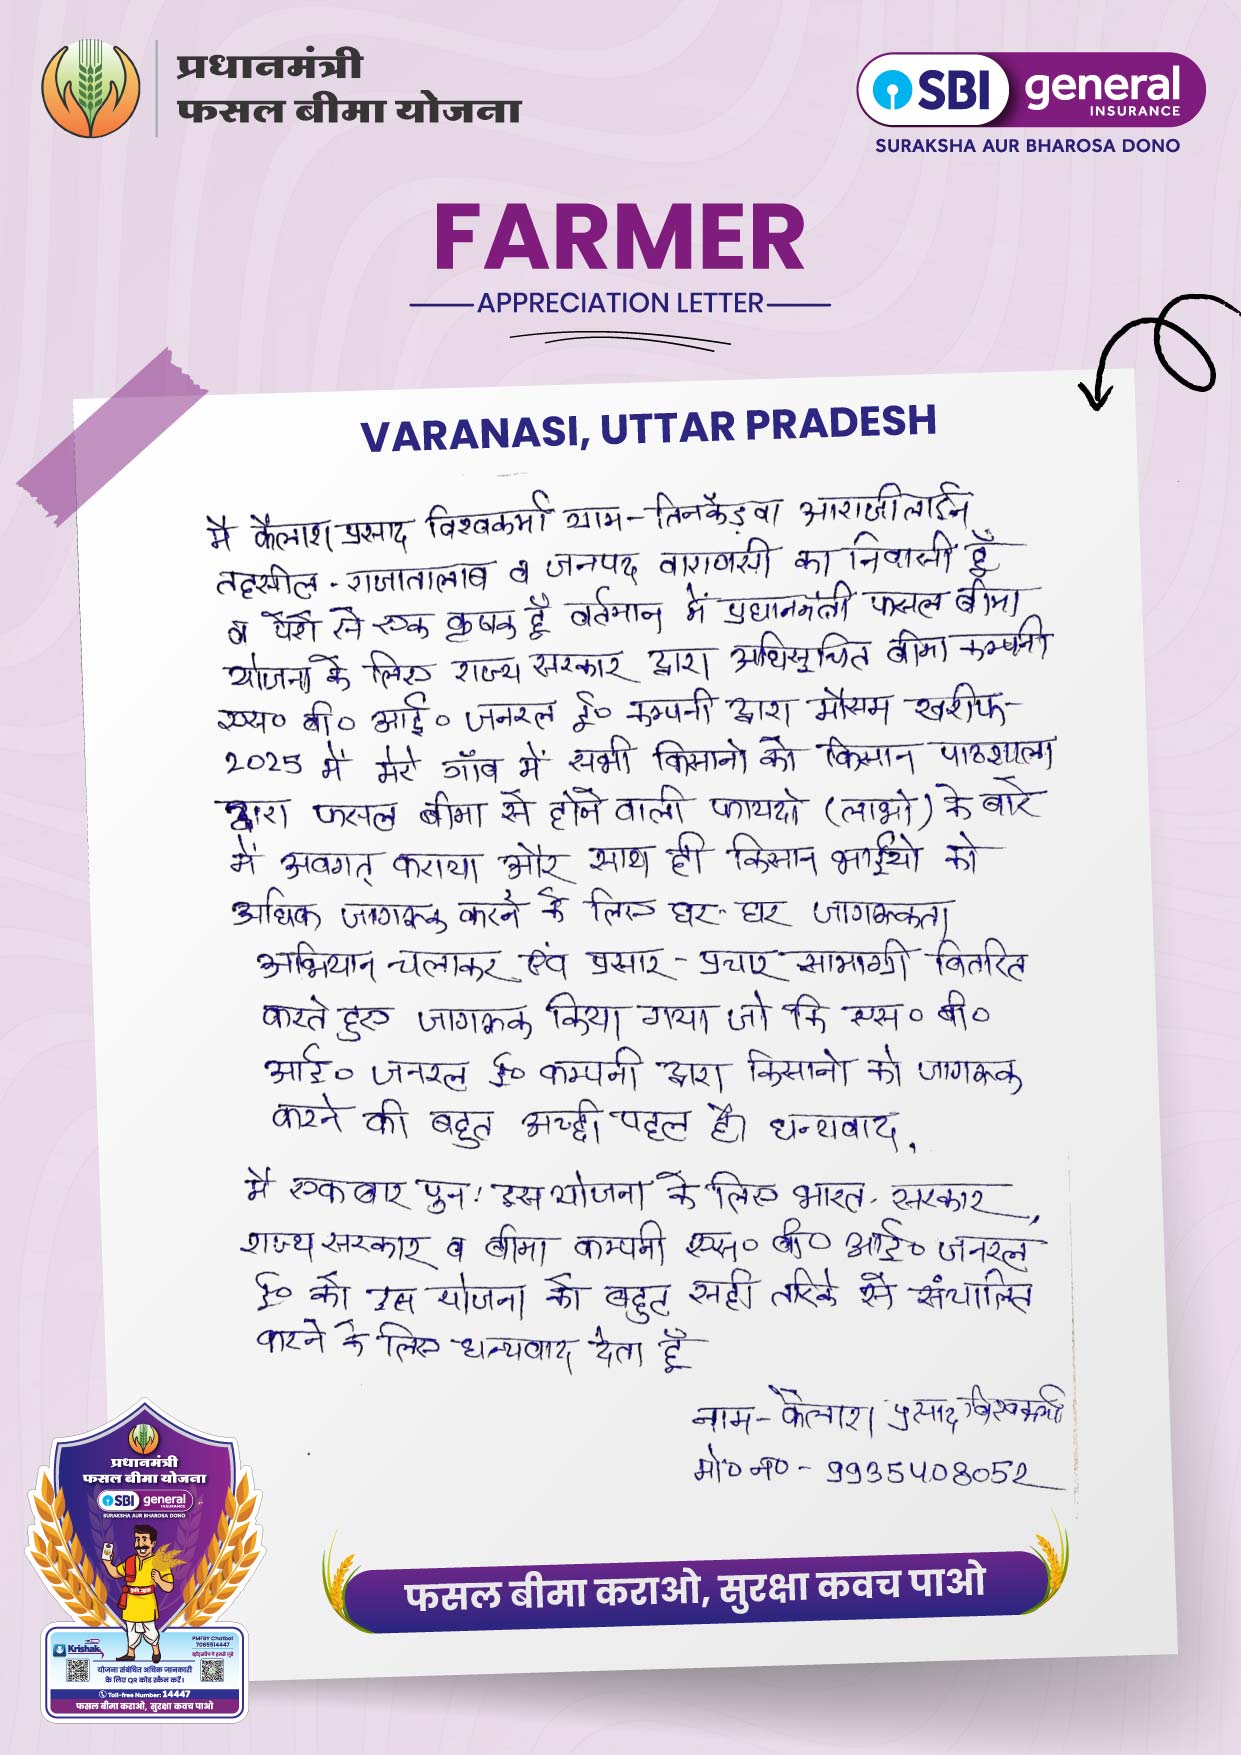 प्रधानमंत्री
फसल बीमा योजना
SBI general
INSURANCE
SURAKSHA AUR BHAROSA DONO
FARMER
APPRECIATION LETTER
VARANASI, UTTAR PRADESH
मै कैलाश प्रसाद विश्वकर्मा ग्राम-तिनकेड़वा आराजीलाईन
तहसील - राजातालाब व जनपद वाराणसी का निवासी हूँ
व पेशे से एक कृषक हूँ वर्तमान में प्रधानमंत्री फसल बीमा
योजना के लिए राज्य सरकार द्वारा अधिसूचित बीमा कम्पनी
एस० बी० आई० जनरल ई० कम्पनी द्वारा मौसम खरीफ-
2025 में मेरे गाँव में सभी किसानो को किसान पाठशाला
द्वारा फसल बीमा से होने वाली फायदो (लाभो) के बारे
में अवगत् कराया और साथ ही किसान भाईयो को
अधिक जागरूक करने के लिए घर-घर जागरूकता
अभियान् चलाकर एवं प्रसार-प्रचार सामाग्री वितरित
करते हुए जागरूक किया गया जो कि एस० बी०
आई० जनरल इ० कम्पनी द्वारा किसानो को जागरूक
करने की बहुत अच्छी पहल है। धन्यवाद,
मै एक बार पुन: इस योजना के लिए भारत-सरकार,
राज्य सरकार व बीमा कम्पनी एस० बी० आई० जनरल
इ० को इस योजना को बहुत सही तरिके से संचालित
करने के लिए धन्यवाद देता हूँ
नाम- कैलाश प्रसाद विश्वकर्मा
मो० न० - 9935408052
फसल बीमा कराओ, सुरक्षा कवच पाओ
प्रधानमंत्री
फसल बीमा योजना
SBI general
INSURANCE
SURAKSHA AUR BHAROSA DONO
Krishak
PMFBY Chatbot
7065514447
योजना संबंधित अधिक जानकारी
के लिए QR कोड स्कैन करें।
Toll-free Number: 14447
फसल बीमा कराओ, सुरक्षा कवच पाओ